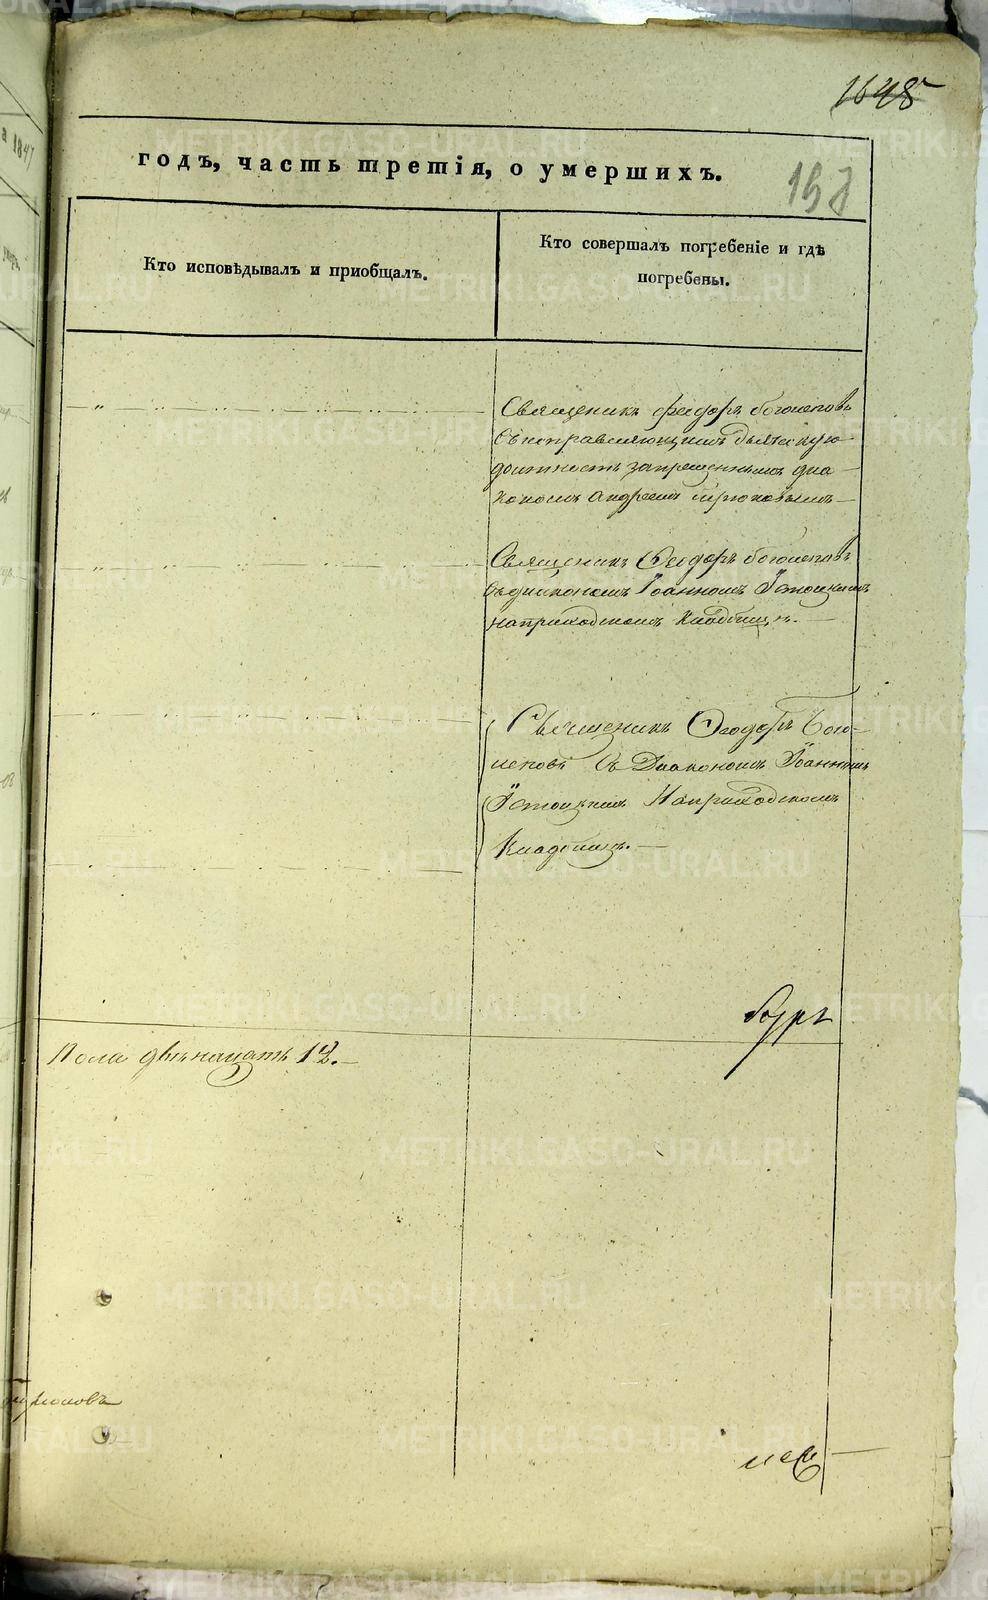 1648
годъ, часть третія, о умершихъ.
157
Кто исповѣдывалъ и пріобщалъ.
Кто совершалъ погребеніе и гдѣ
погребены.
Священикъ Феодоръ Боголеповъ
съ исправляющимъ дьяческую
должность запрещеннымъ диа
кономъ Андреемъ
Священикъ Феодоръ Боголеповъ
съ диакономъ Іоанномъ
на приходскомъ кладбищѣ.
Священикъ Феодоръ Бого-
леповъ съ Диакономъ Іоанномъ
На приходскомъ
Кладбищѣ.
Пола двѣнацать 12.
METRIKI.GASO-URAL.RU